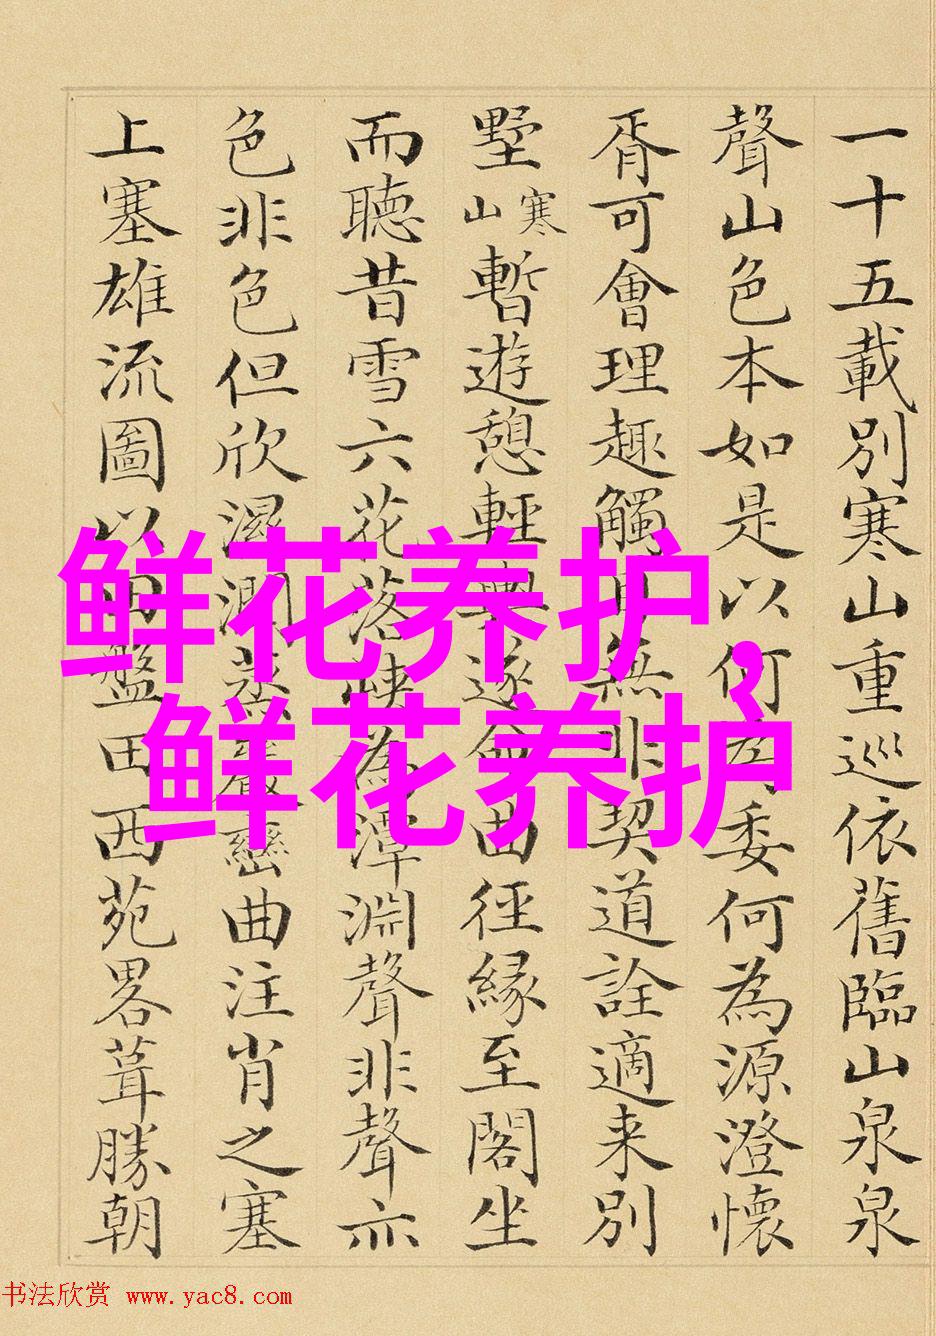 一十五載別寒山重巡依舊臨山泉泉
聲山色本如是以何為委何為源澄懷
胥可會理趣觸目無非契道詮適来別
墅寒山暫遊憩輕輿遂命曲徑緣至閣坐
而聽昔雪六花落峡為潭淵聲非聲亦
色非色但欣濕潤蒸巖巒曲注肖之塞
上塞雄流圖以田盤田西苑畧葺勝朝
鲜花养护,
鲜花养护
书法欣赏 www.yac8.com